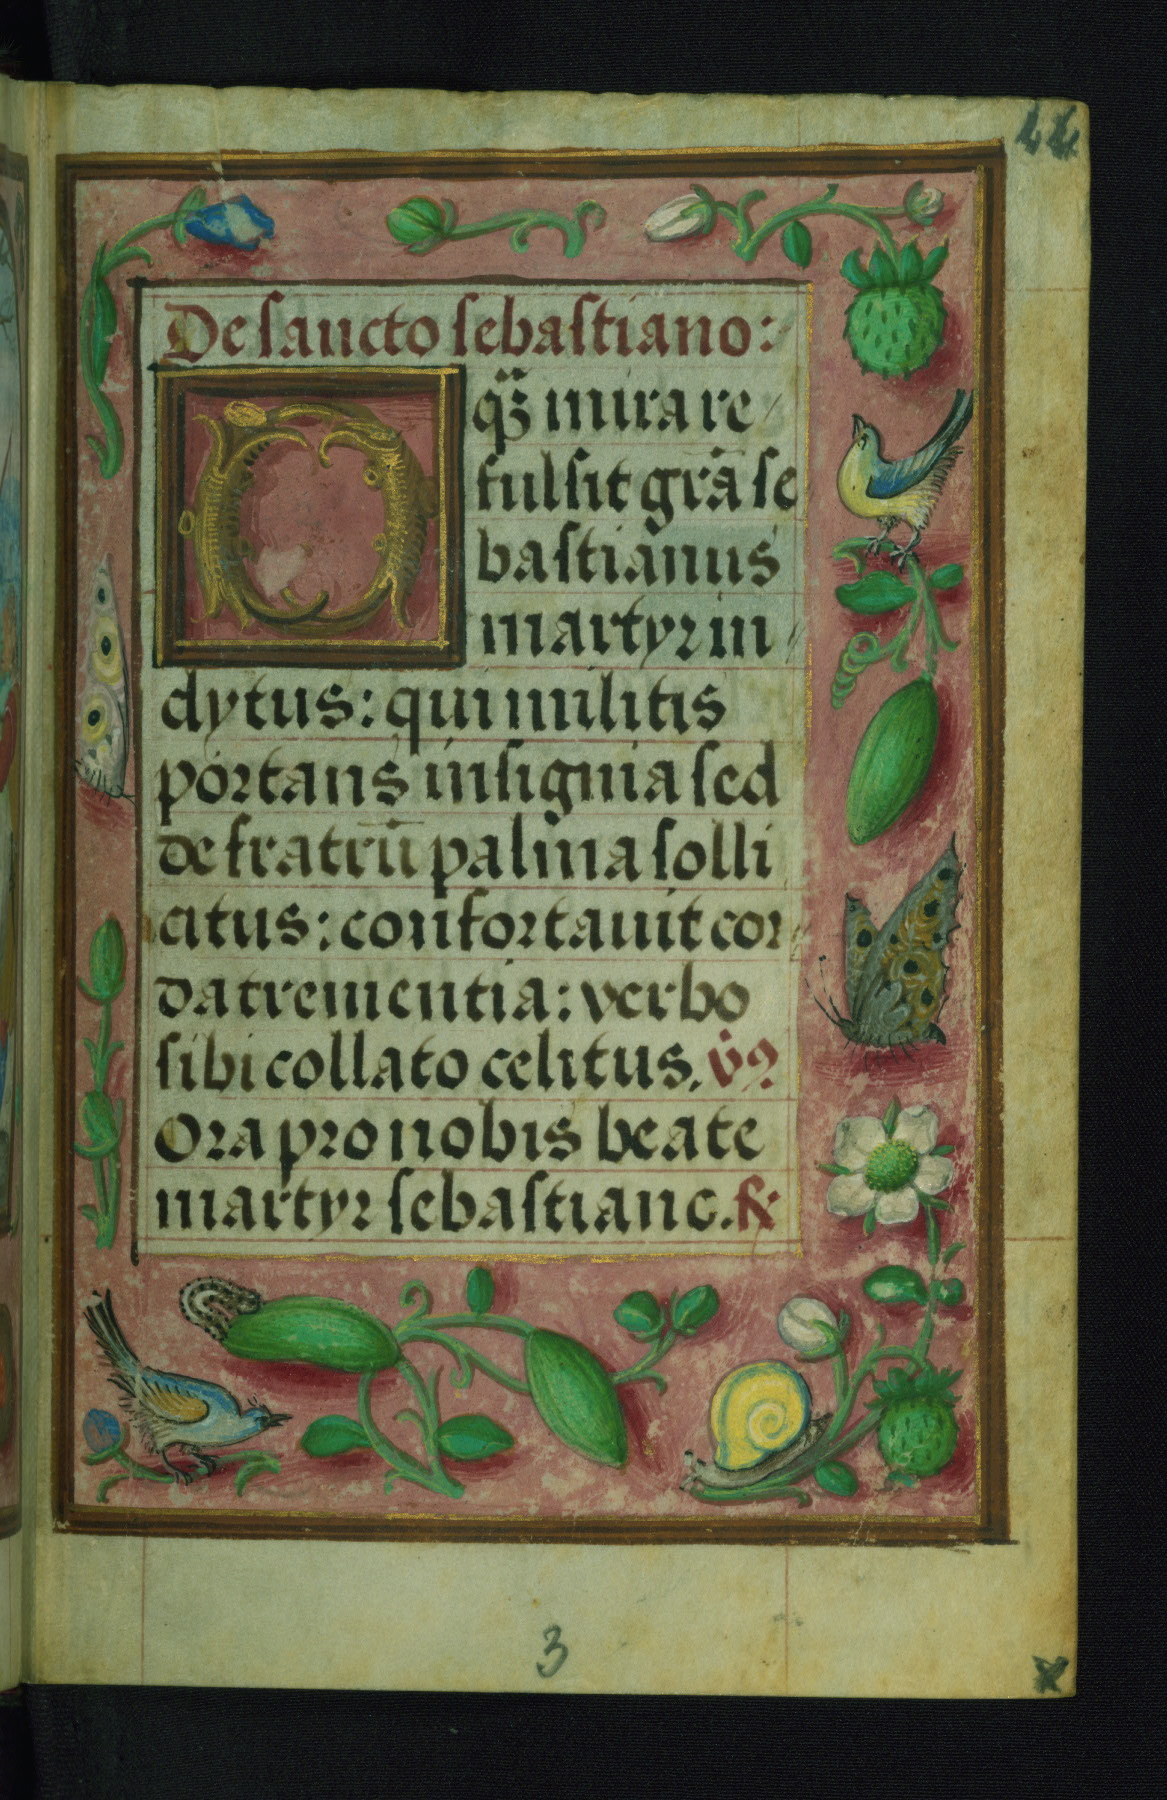 De sancto sebastiano:
O
qȝ mira re
fulsit grā se
bastianus
martyr in
clytus: qui militis
portans insignia sed
de fratrū palma solli
citus: confortauit cor
da trementia: verbo
sibi collato celitus. V̓9
Ora pro nobis beate
martyr sebastiane. R̸
3